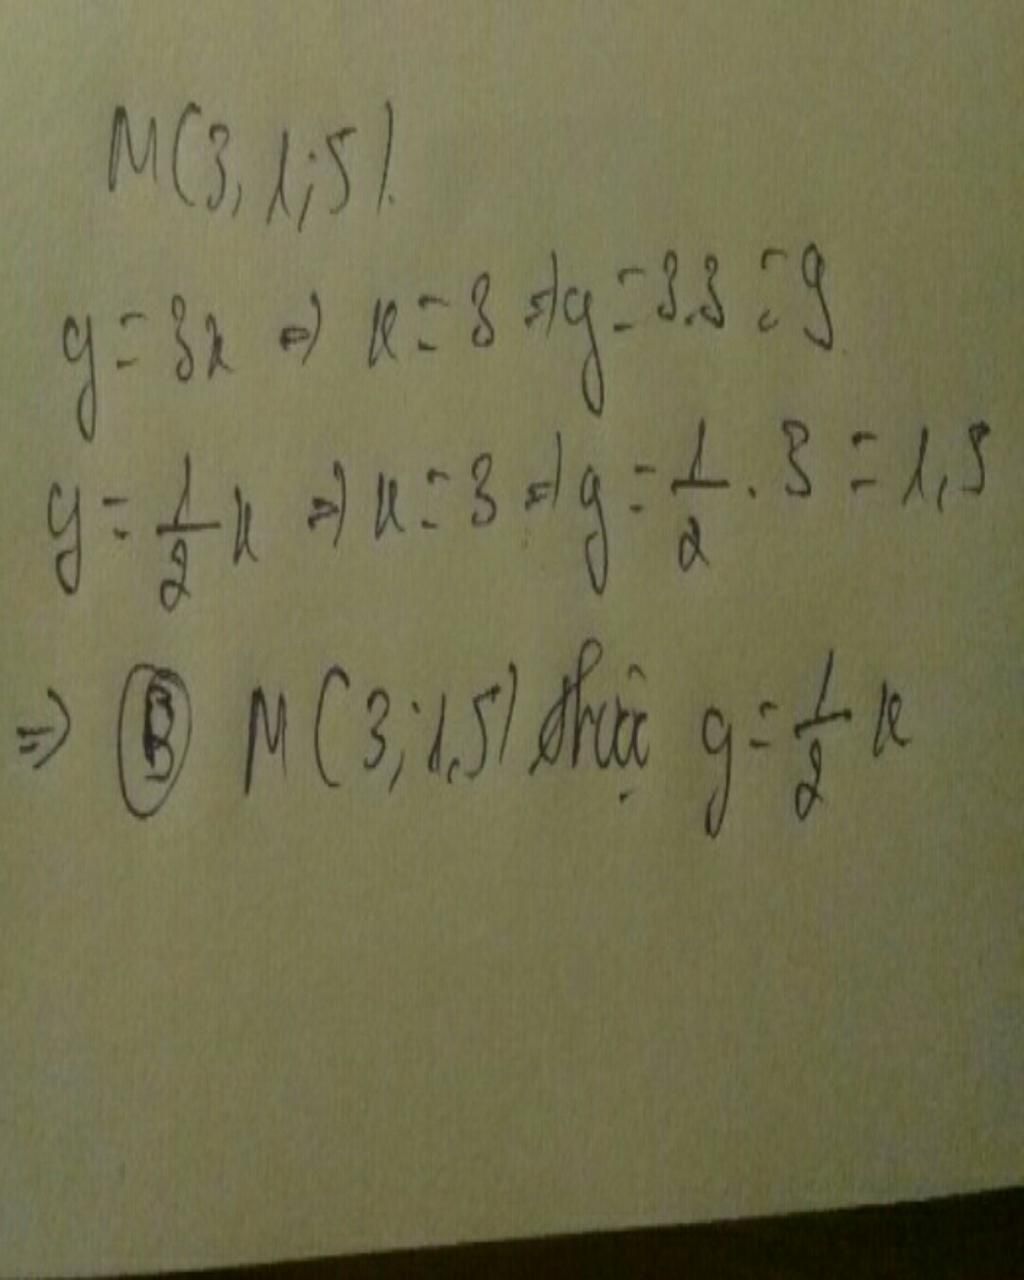 M(3, 1;5).
y = 3x ⇒ x = 3 ⇒ y = 3.3 = 9
y = \frac{1}{2}x ⇒ x = 3 ⇒ y = \frac{1}{2} . 3 = 1,5
⇒ B M(3; 1,5) thuộc y = \frac{1}{2}x